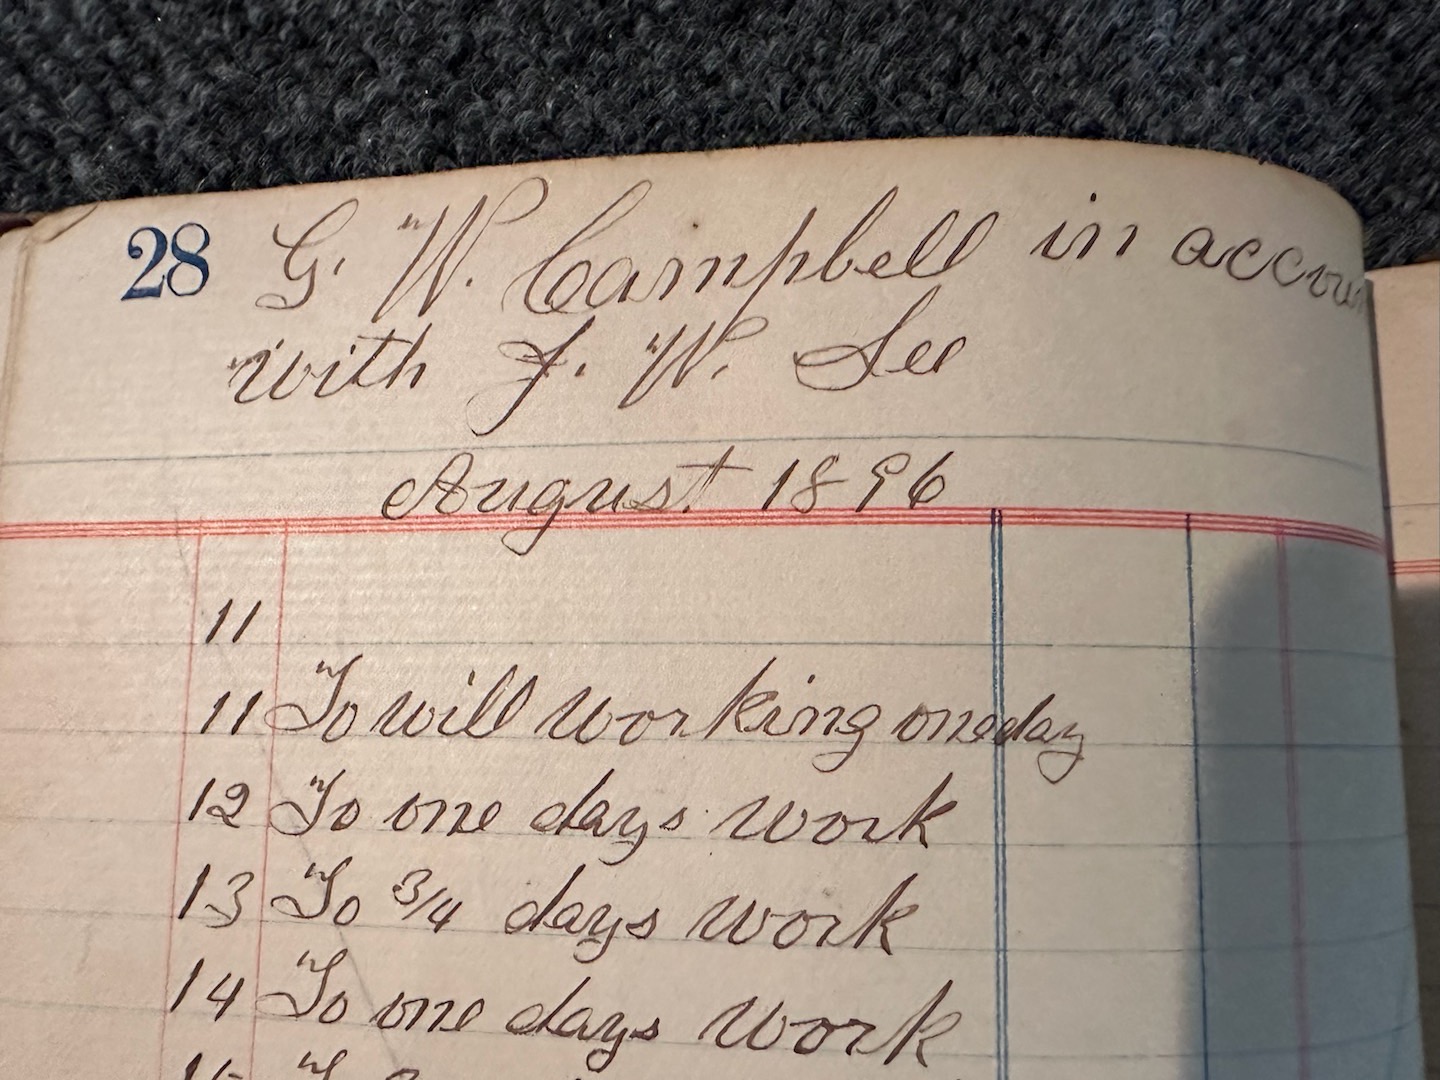 28 G. W. Campbell in accou
with J. W. See
August 1896
11
11 To will working one day
12 To one days work
13 To 3/4 days work
14 To one days work